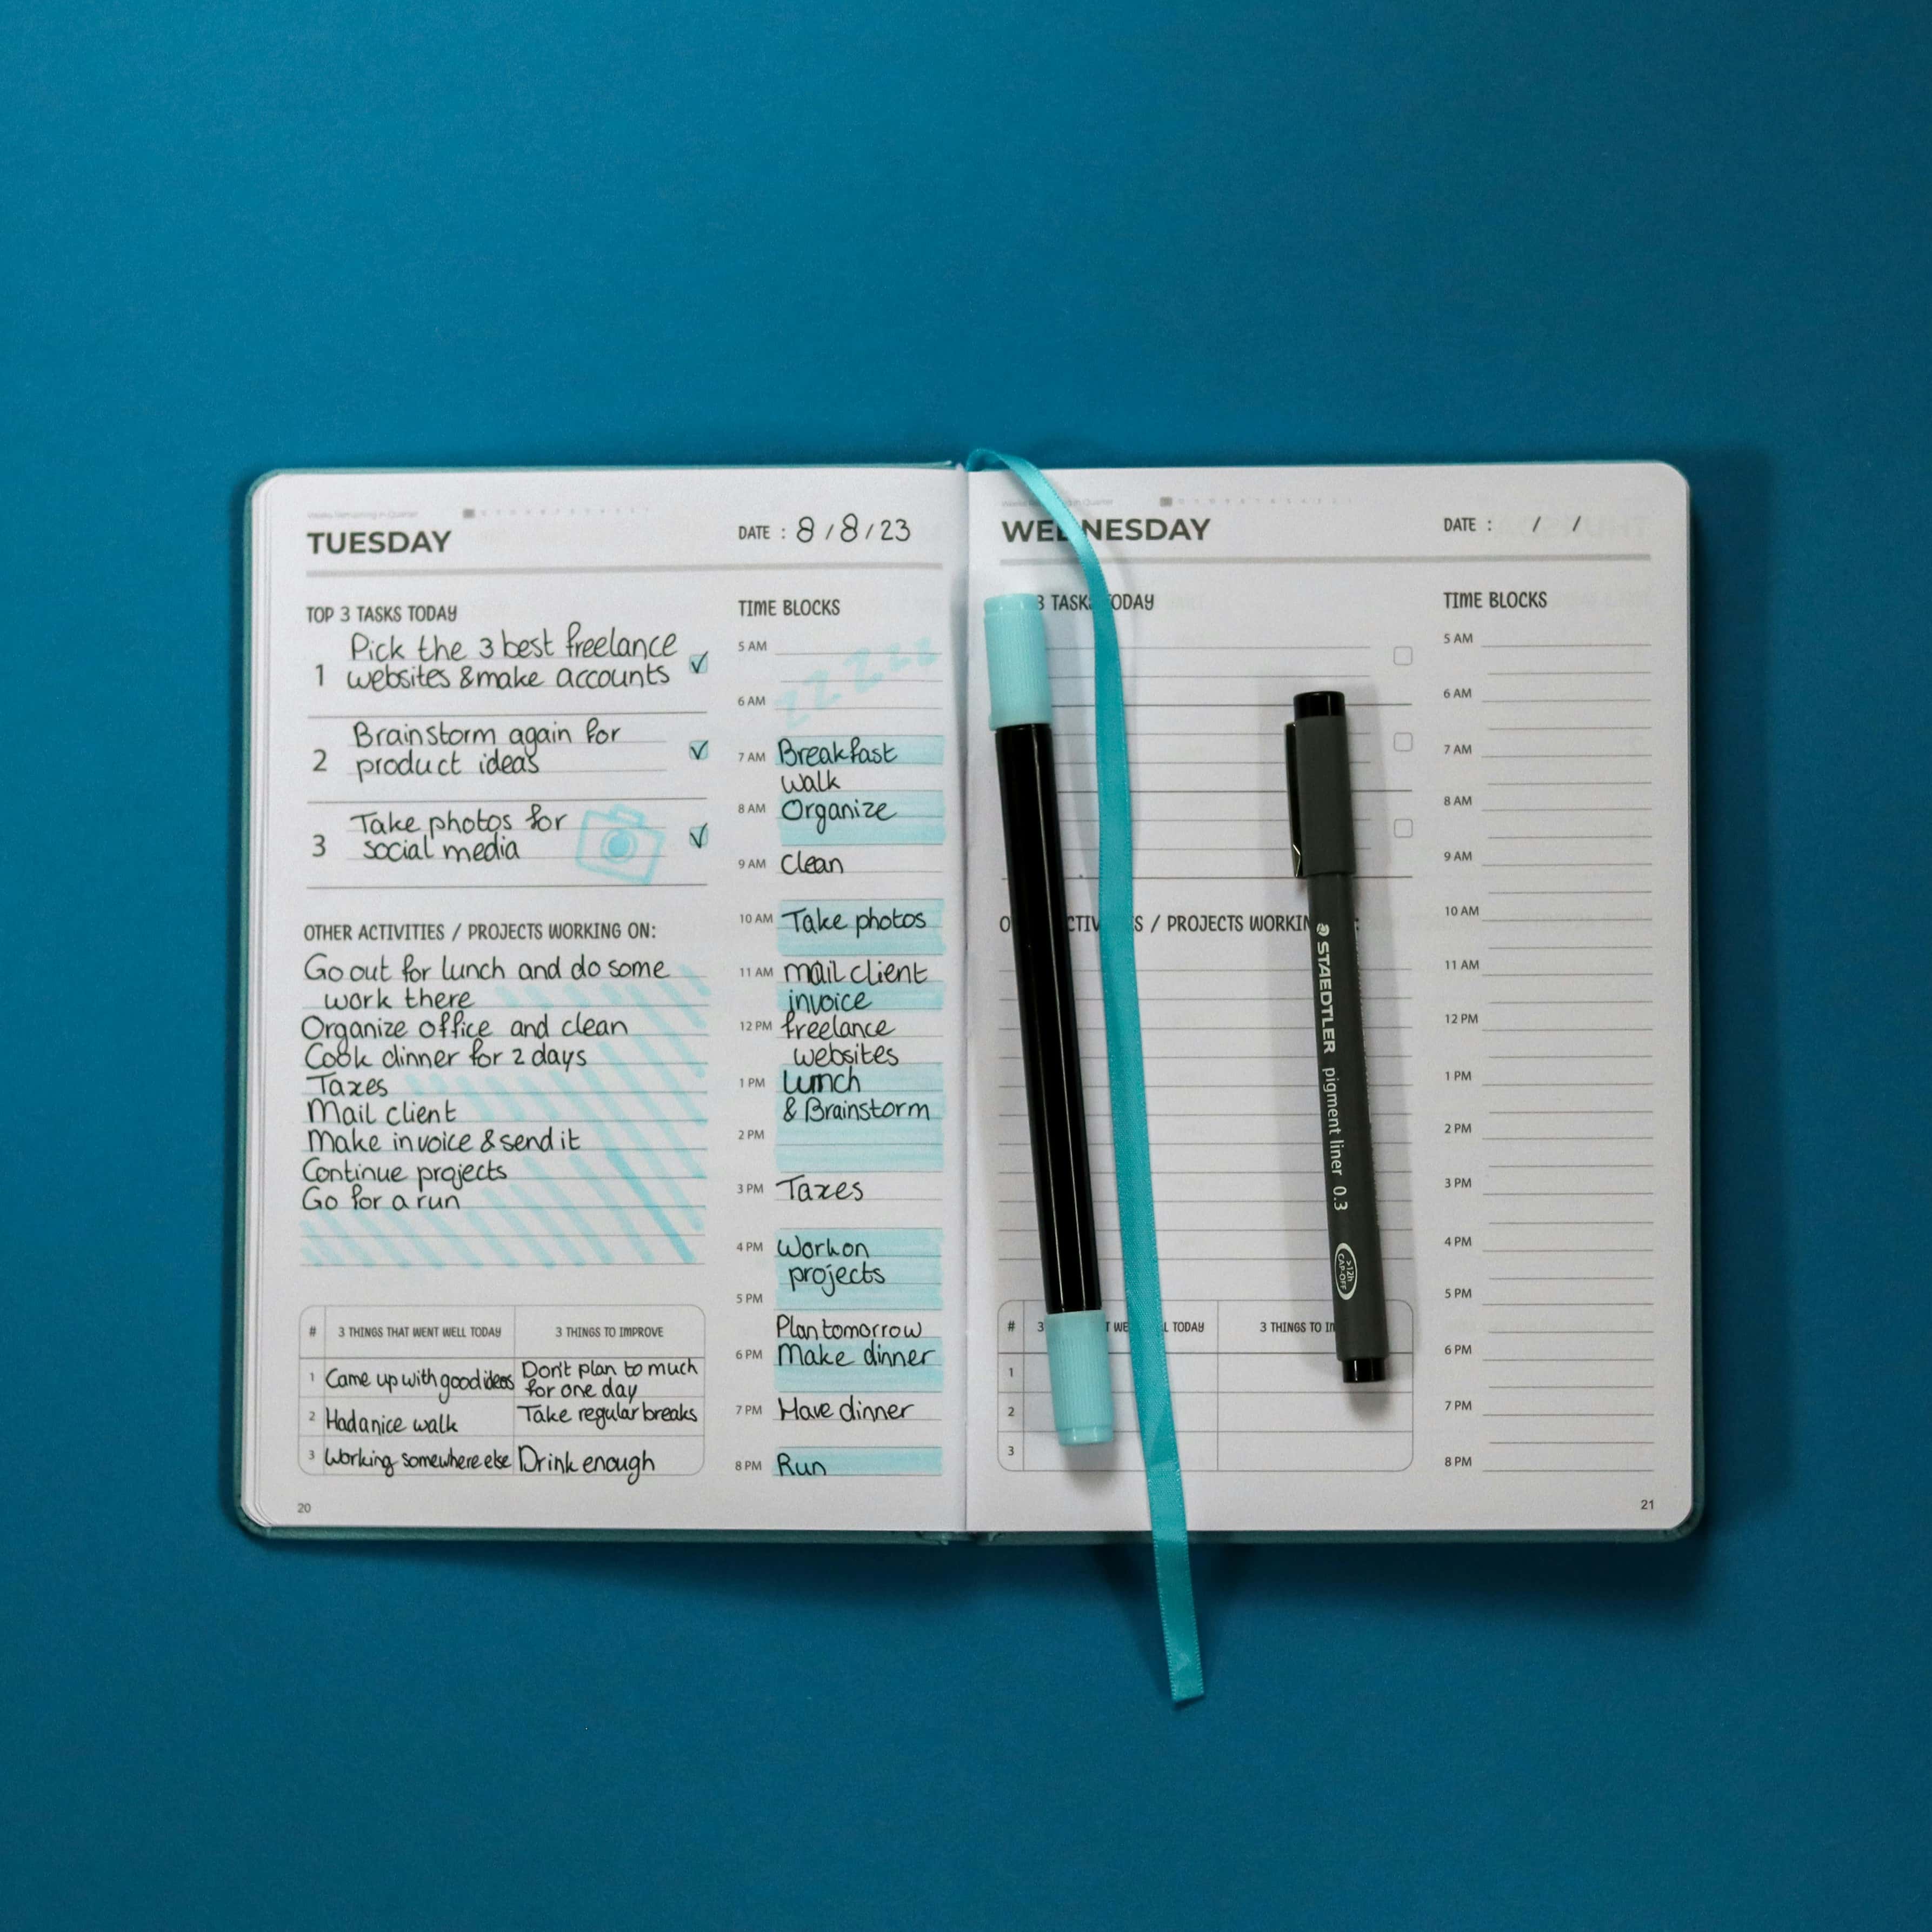 TUESDAY
DATE : 8 / 8 / 23
TOP 3 TASKS TODAY
1 Pick the 3 best freelance
websites & make accounts
2 Brainstorm again for
product ideas
3 Take photos for
social media
OTHER ACTIVITIES / PROJECTS WORKING ON:
Go out for lunch and do some
work there
Organize office and clean
Cook dinner for 2 days
Taxes
Mail client
Make invoice & send it
Continue projects
Go for a run
# 3 THINGS THAT WENT WELL TODAY 3 THINGS TO IMPROVE
1 Came up with good ideas Don't plan to much
for one day
2 Had a nice walk Take regular breaks
3 Working somewhere else Drink enough
20
TIME BLOCKS
5 AM
zzzzzz
6 AM
7 AM Breakfast
walk
8 AM Organize
9 AM Clean
10 AM Take photos
11 AM Mail client
invoice
12 PM freelance
websites
1 PM Lunch
& Brainstorm
2 PM
3 PM Taxes
4 PM Work on
projects
5 PM
Plan tomorrow
6 PM Make dinner
7 PM Have dinner
8 PM Run
WEDNESDAY
DATE : / /
3 TASKS TODAY
/ PROJECTS WORKIN
# 3 TODAY 3 THINGS TO
1
2
3
TIME BLOCKS
5 AM
6 AM
7 AM
8 AM
9 AM
10 AM
11 AM
12 PM
1 PM
2 PM
3 PM
4 PM
5 PM
6 PM
7 PM
8 PM
21
STAEDTLER pigment liner 0.3
>12h
CAP-OFF